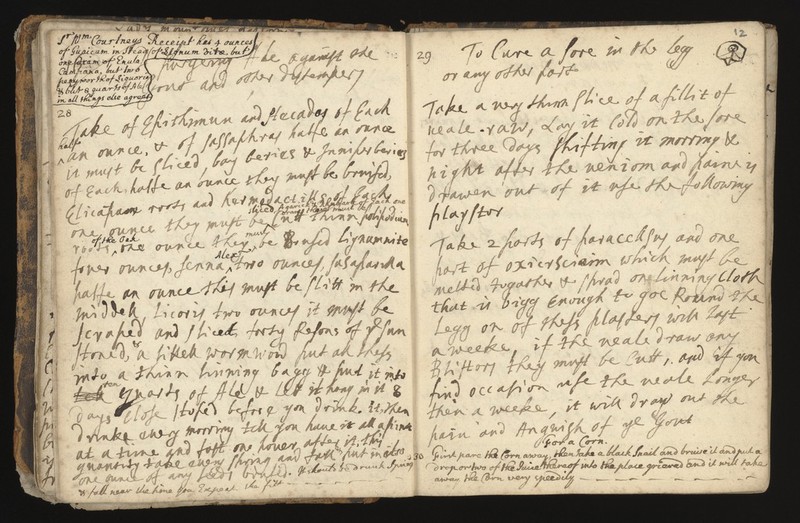 Sr Wm Courtneys Receipt has 4 ounces
of Guaicum in Stead of Lignum Vitæ but
one dram of Enula
Campana, but two
penyworth of Liquoris
& but 8 quarts of Ale
in all things else agrees
purgeing the against the
and other distempers
28
Take of Epithimun and Stecados of Each
half an ounce, & of Sassaphras halfe an ounce
it must be Sliced, bay beries & Juniper beries
of Each halfe an ounce they must be brused,
Elicapane roots and hermodactills of Each
one ounce they must be cutt thinn polipodium
roots of the Oak, one ounce they must be Brused Lignumvite
fower ounces Senna Alex: two ounces, Sasaparilla
halfe an ounce this must be Slitt in the
middell, Licoris two ounces it must be
Scraped and Sliced, forty Resons of ye Sun
Stoned, & a littell wormwood put all thess
into a thinn linning bagg & put it into
ten quarts of Ale & Let it hang in it 8
Days Close Stoped before you drink it, then
drinke every morning till you have it all a pinte
at a time and fast one houer, after it, this
quantity take every Spring and fall put in also
one ounce of any Seeds brused.
& fall near the time you Expect the fitt
12
29
To Cure a Sore in the Legg
or any other part
Take a very thinn Slice of a fillit of
veale - raw, Lay it Cold on the Sore
for three Days Shifting it morning &
night after the veniom and paine is
drawen out of it use the following
playstor
Take 2 parts of paracelsus and one
part of oxicrscieim which must be
melted togather & Sprad on linning Cloth
that is bigg Enough to goe Round the
Legg on of thess plasters will Last
a weeke, if the veale draw any
Blisters they must be Cutt, and if you
find occasion use the veale Longer
then a weeke, it will draw out the
pain and Anguish of ye Gout
For a Corn.
30 First pare the Corn away, then take a black Snail and bruise it and put a
drop or two of the Juise thereof into the place grieved and it will take
away the Corn very speedily